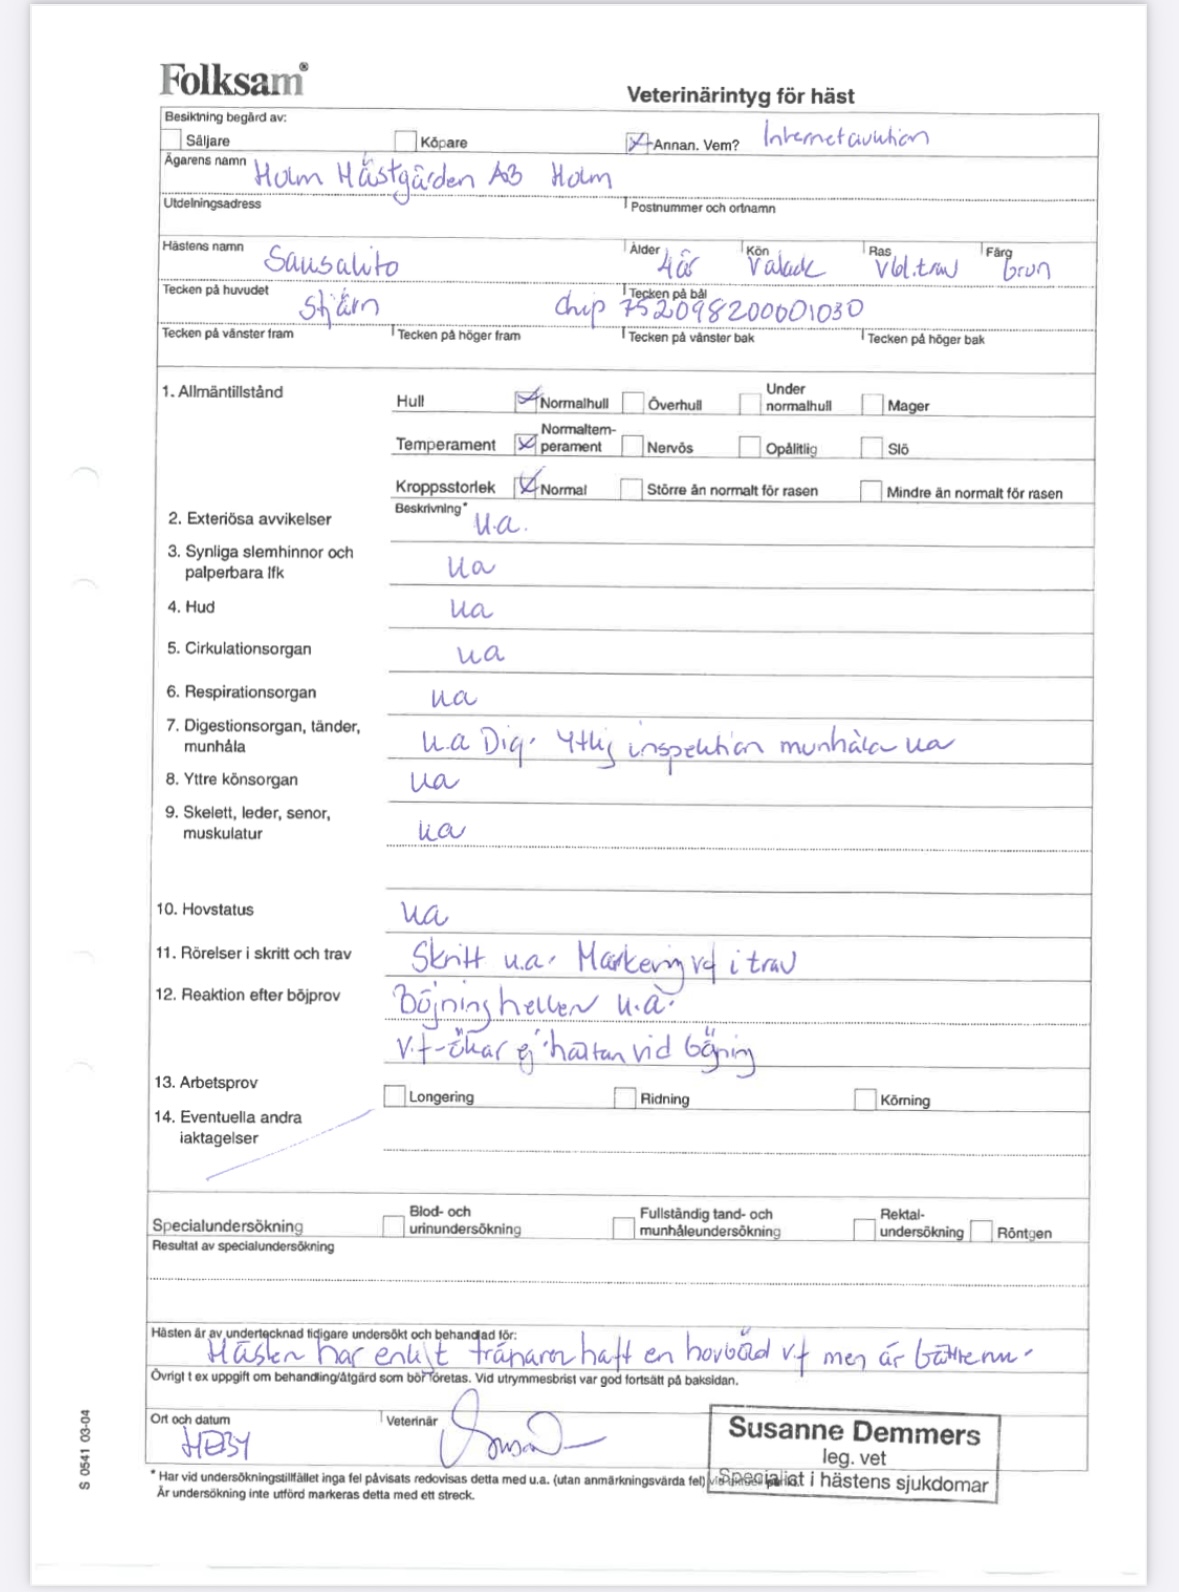 Folksam®
Veterinärintyg för häst
Besiktning begärd av:
Säljare Köpare Annan. Vem? Internetauktion
Ägarens namn Holm Hästgården AB Holm
Utdelningsadress Postnummer och ortnamn
Hästens namn Sausalito Ålder 4 år Kön Valack Ras Vbl.trav Färg brun
Tecken på huvudet Stjärn Tecken på bål chip 752098200001030
Tecken på vänster fram Tecken på höger fram Tecken på vänster bak Tecken på höger bak
1. Allmäntillstånd Hull Normalhull Överhull Under normalhull Mager
Temperament Normaltemperament Nervös Opålitlig Slö
Kroppsstorlek Normal Större än normalt för rasen Mindre än normalt för rasen
2. Exteriösa avvikelser Beskrivning* u.a.
3. Synliga slemhinnor och palperbara lfk ua
4. Hud ua
5. Cirkulationsorgan ua
6. Respirationsorgan ua
7. Digestionsorgan, tänder, munhåla u.a Dig. Ytlig inspektion munhåla ua
8. Yttre könsorgan ua
9. Skelett, leder, senor, muskulatur ua
10. Hovstatus ua
11. Rörelser i skritt och trav Skritt u.a. Markering vf i trav
12. Reaktion efter böjprov Böjning heller u.a.
v.f - ökar ej hältan vid böjning
13. Arbetsprov Longering Ridning Körning
14. Eventuella andra iaktagelser
Specialundersökning Blod- och urinundersökning Fullständig tand- och munhåleundersökning Rektal-undersökning Röntgen
Resultat av specialundersökning
Hästen är av undertecknad tidigare undersökt och behandlad för:
Hästen har enligt tränaren haft en hovböld v.f men är bättre nu.
Övrigt t ex uppgift om behandling/åtgärd som bör företas. Vid utrymmesbrist var god fortsätt på baksidan.
Ort och datum HEBY Veterinär
Susanne Demmers
leg. vet
Specialist i hästens sjukdomar
* Har vid undersökningstillfället inga fel påvisats redovisas detta med u.a. (utan anmärkningsvärda fel)
Är undersökning inte utförd markeras detta med ett streck.
S 0541 03-04